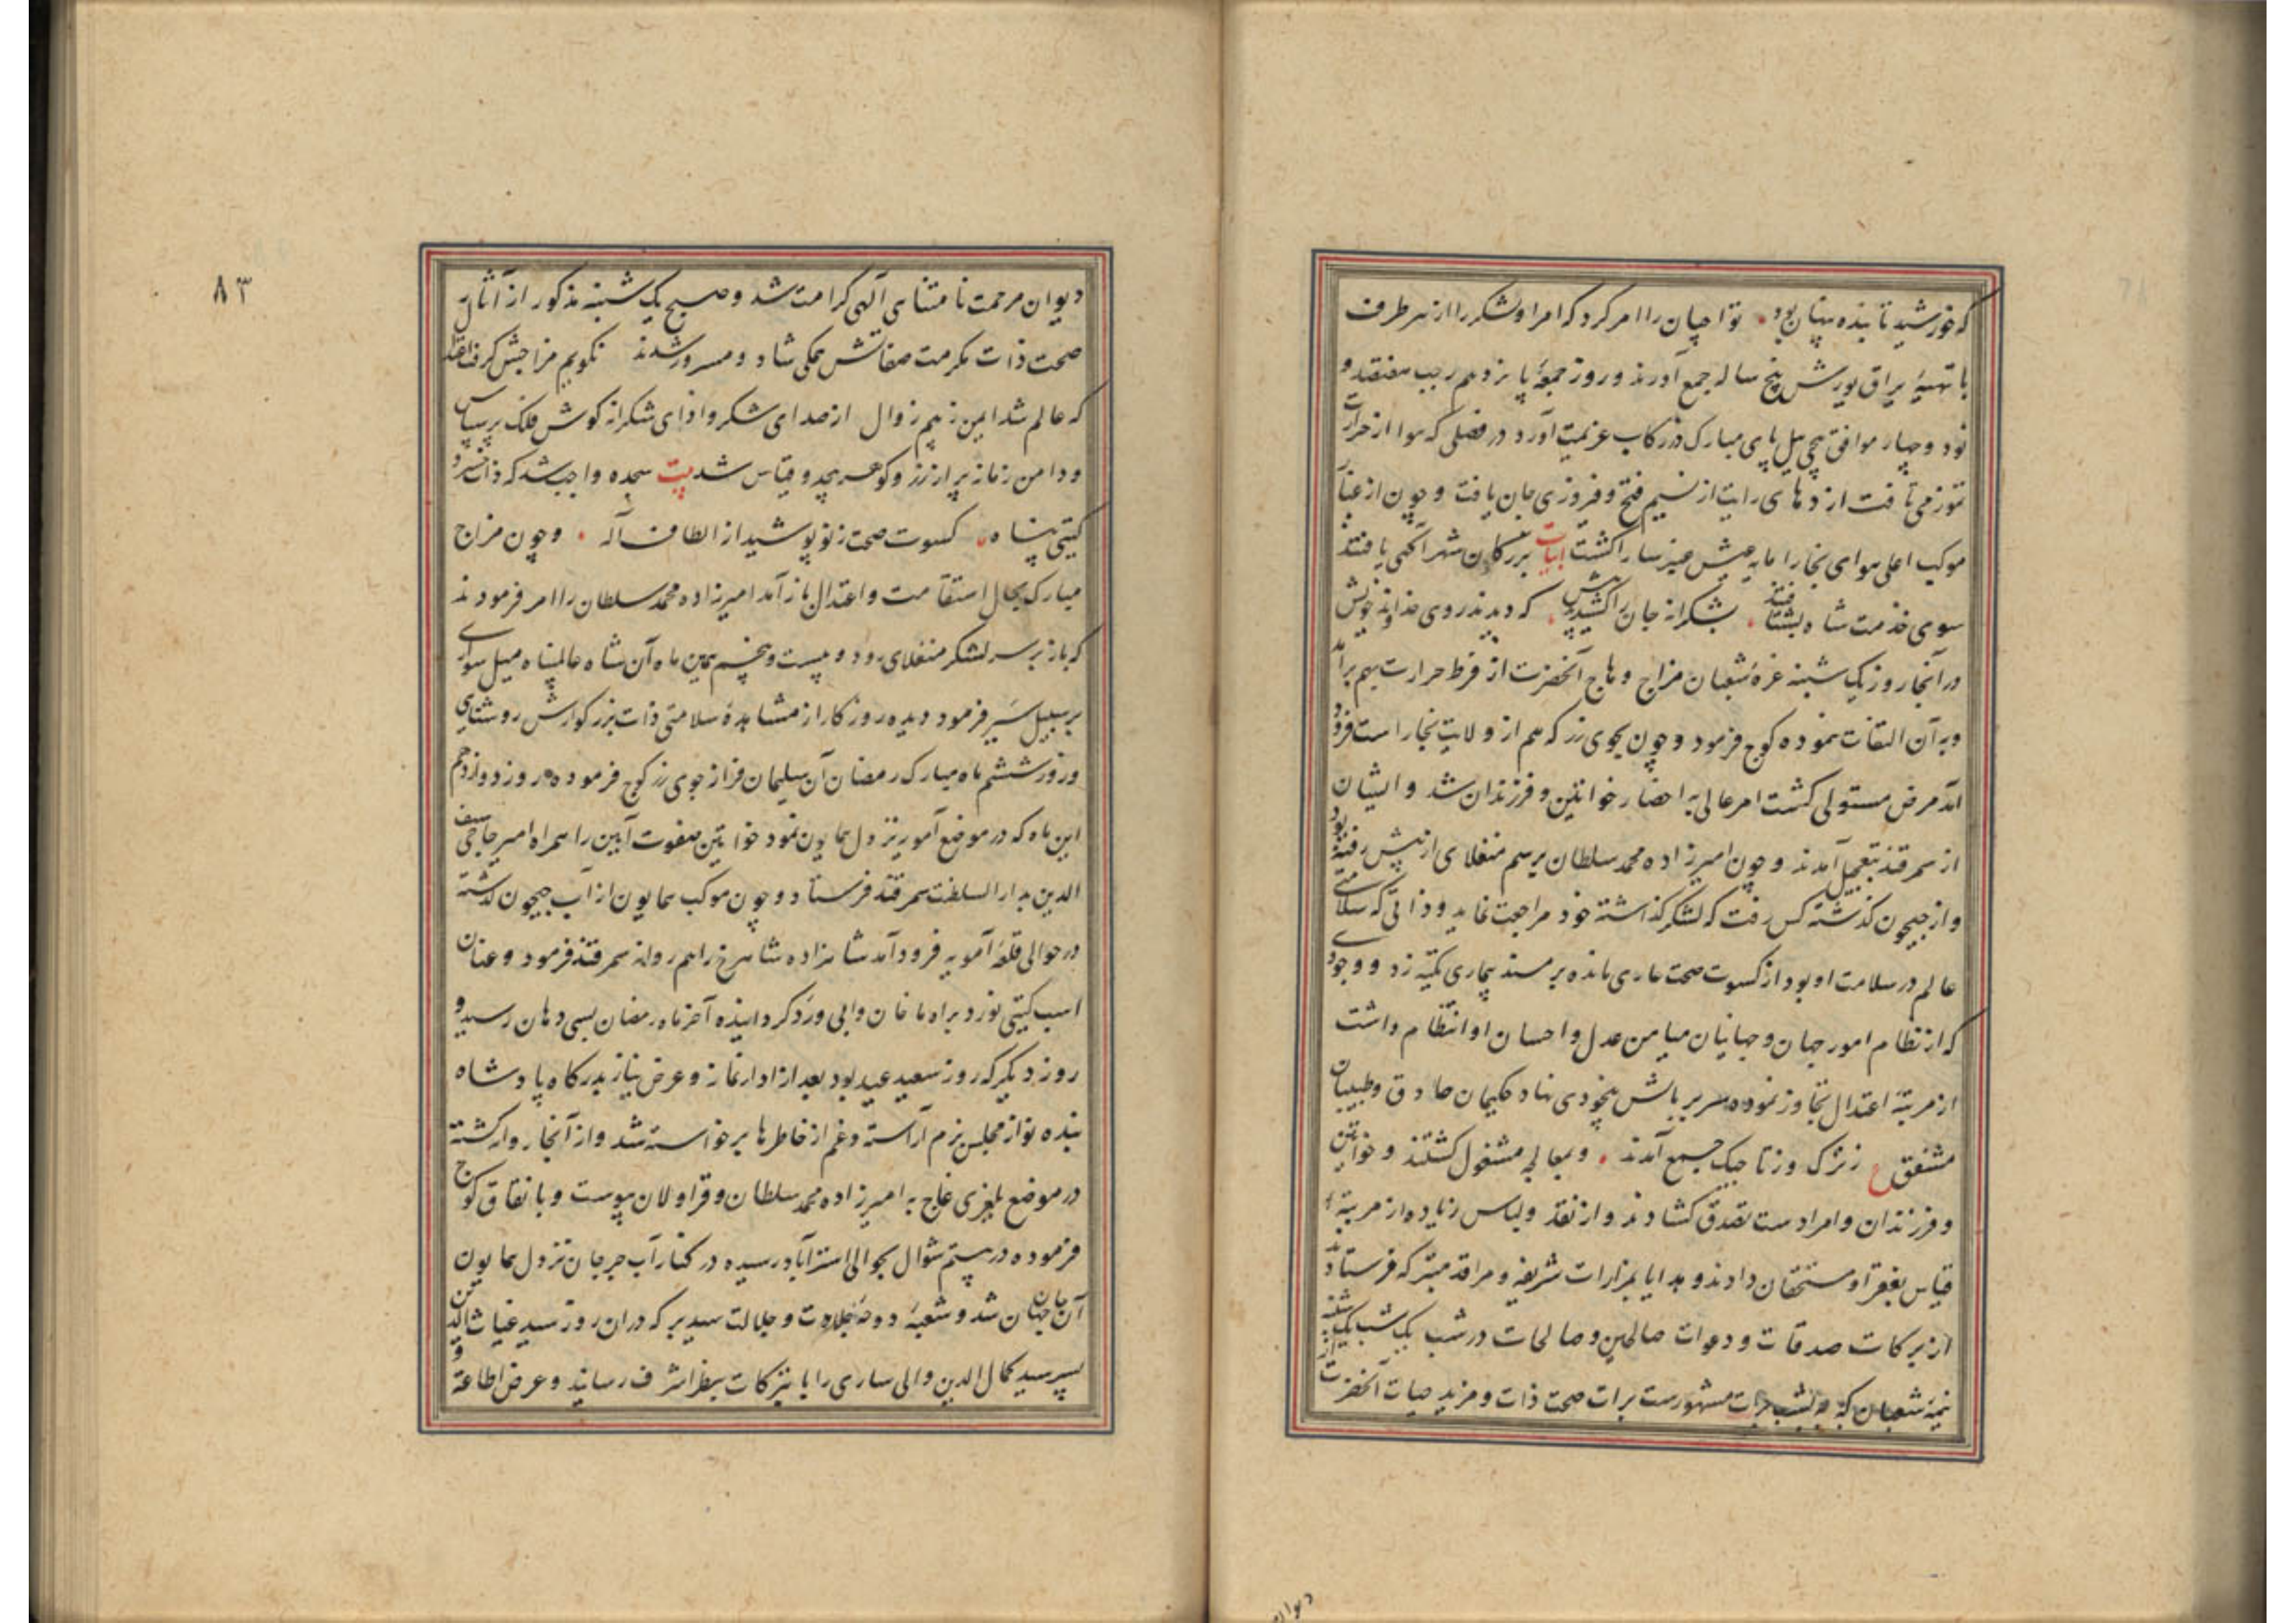 که خورشید تابنده پنهان بود تواجیان را امر کرد که امرا و لشکر را از هر طرف
با تهیهٔ یراق یورش پنج ساله جمع آورند و روز جمعهٔ پانزدهم رجب هفتصد و
نود و چهار موافق پیچی ئیل پای مبارک در رکاب عزیمت آورد در فصلی که هوا از حرارت
تموز می تافت اژدهای رایت از نسیم فتح و فروزی جان یافت و چون از عبار
موکب اعلی هوای بخارا مایه بخش عنبر سارا گشت ابیات بزرگان شهر آگهی یافتند
سوی خدمت شاه بشتافتند بشکرانه جان را کشیدند پیش که دیدند روی خداوند خویش
در آنجا روز یک شنبه غرهٔ شعبان مزاج وهاج آنحضرت از فرط حرارت بهم برآمد
و به آن التفات ننموده کوچ فرمود و چون بجوی زر که هم از ولایت بخارا است فرود
آمد مرض مستولی گشت امر عالی به احضار خواتین و فرزندان شد و ایشان
از سمرقند بتعجیل آمدند و چون امیرزاده محمد سلطان برسم منغلای از پیش رفته بود
و از جیحون گذشته کس رفت که لشکر گذاشته خود مراجعت نماید و ذاتی که سلامتی
عالم در سلامت او بود از کسوت صحت عاری مانده بر مسند بیماری تکیه زد و وجودی
که انتظام امور جهان و جهانیان میامن عدل و احسان او انتظام داشت
از مرتبهٔ اعتدال تجاوز نموده سر بر بالش بیخودی نهاد حکیمان حاذق و طبیبان
مشفق ع ز ترک و ز تاجیک جمع آمدند و بمعالجه مشغول گشتند و خواتین
و فرزندان و امرا دست تصدق گشادند و از نقد و لباس زیاده از مرتبهٔ
قیاس بفقرا و مستحقان دادند و هدایا بمزارات شریفه و مراقد متبرکه فرستادند
از برکات صدقات و دعوات صالحین و صالحات در شب یک شنبه
نیمهٔ شعبان که به شب برات مشهورست برات صحت ذات و مزید حیات آنحضرت از
دیوان
۸۳
دیوان مرحمت نامتناهی آلهی کرامت شد و صبح یک شنبه مذکور از آثار
صحت ذات مکرمت صفاتش همگی شاد و مسرور شدند نگویم مزاجش گرفت اعتدال
که عالم شد ایمن ز بیم زوال از صدای شکر و ادای شکرانه گوش فلک پر سپاس
و دامن زمانه پر از زر و گوهر بیحد و قیاس شد بیت سجده واجب شد که ذات خسرو
گیتی پناه کسوت صحت ز نو پوشید از الطاف آله و چون مزاج
مبارک بحال استقامت و اعتدال باز آمد امیرزاده محمد سلطان را امر فرمودند
که باز بر سر لشکر منغلای رود و بیست و پنجم همین ماه آن شاه عالمپناه میل سواری
بر سبیل سیر فرمود دیده روزگار از مشاهدهٔ سلامتی ذات بزرگوارش روشنایی
و روز ششم ماه مبارک رمضان آن سلیمان فر از جوی زر کوچ فرموده روز دوازدهم
این ماه که در موضع آمویه نزول همایون نمود خواتین صفوت آیین را همراه امیر حاجی سیف
الدین بدار السلطنت سمرقند فرستاد و چون موکب همایون از آب جیحون گذشته
در حوالی قلعهٔ آمویه فرود آمد شاهزاده شاهرخ را هم روانه سمرقند فرمود و عنان
اسب گیتی نورد براه ماخان و ابی ورد گردانیده آخر ماه رمضان بسی دهان رسید و
روز دیگر که روز سعید عید بود بعد از ادای نماز و عرض نیاز بدرگاه پادشاه
بنده نواز مجلس بزم آراسته و غم از خاطرها برخواسته شد و از آنجا روان گشته
در موضع یلغزی غاج به امیرزاده محمد سلطان و قراولان پیوست و باتفاق کوچ
فرموده در بیستم شوال بحوالی استراباد رسیده در کنار آب جرجان نزول همایون
آن جان جهان شد و شعبهٔ دوحهٔ جلادت و جلالت سید برکه دران روز سید غیاث الدین
پسر سید کمال الدین والی ساری را با تبرکات بنظر اشرف رسانید و عرض اطاعة و